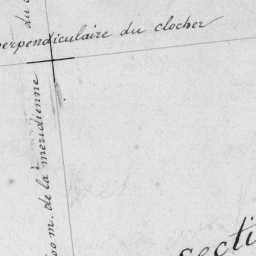 perpendiculaire du clocher
00 m. de la méridienne
du
Secti